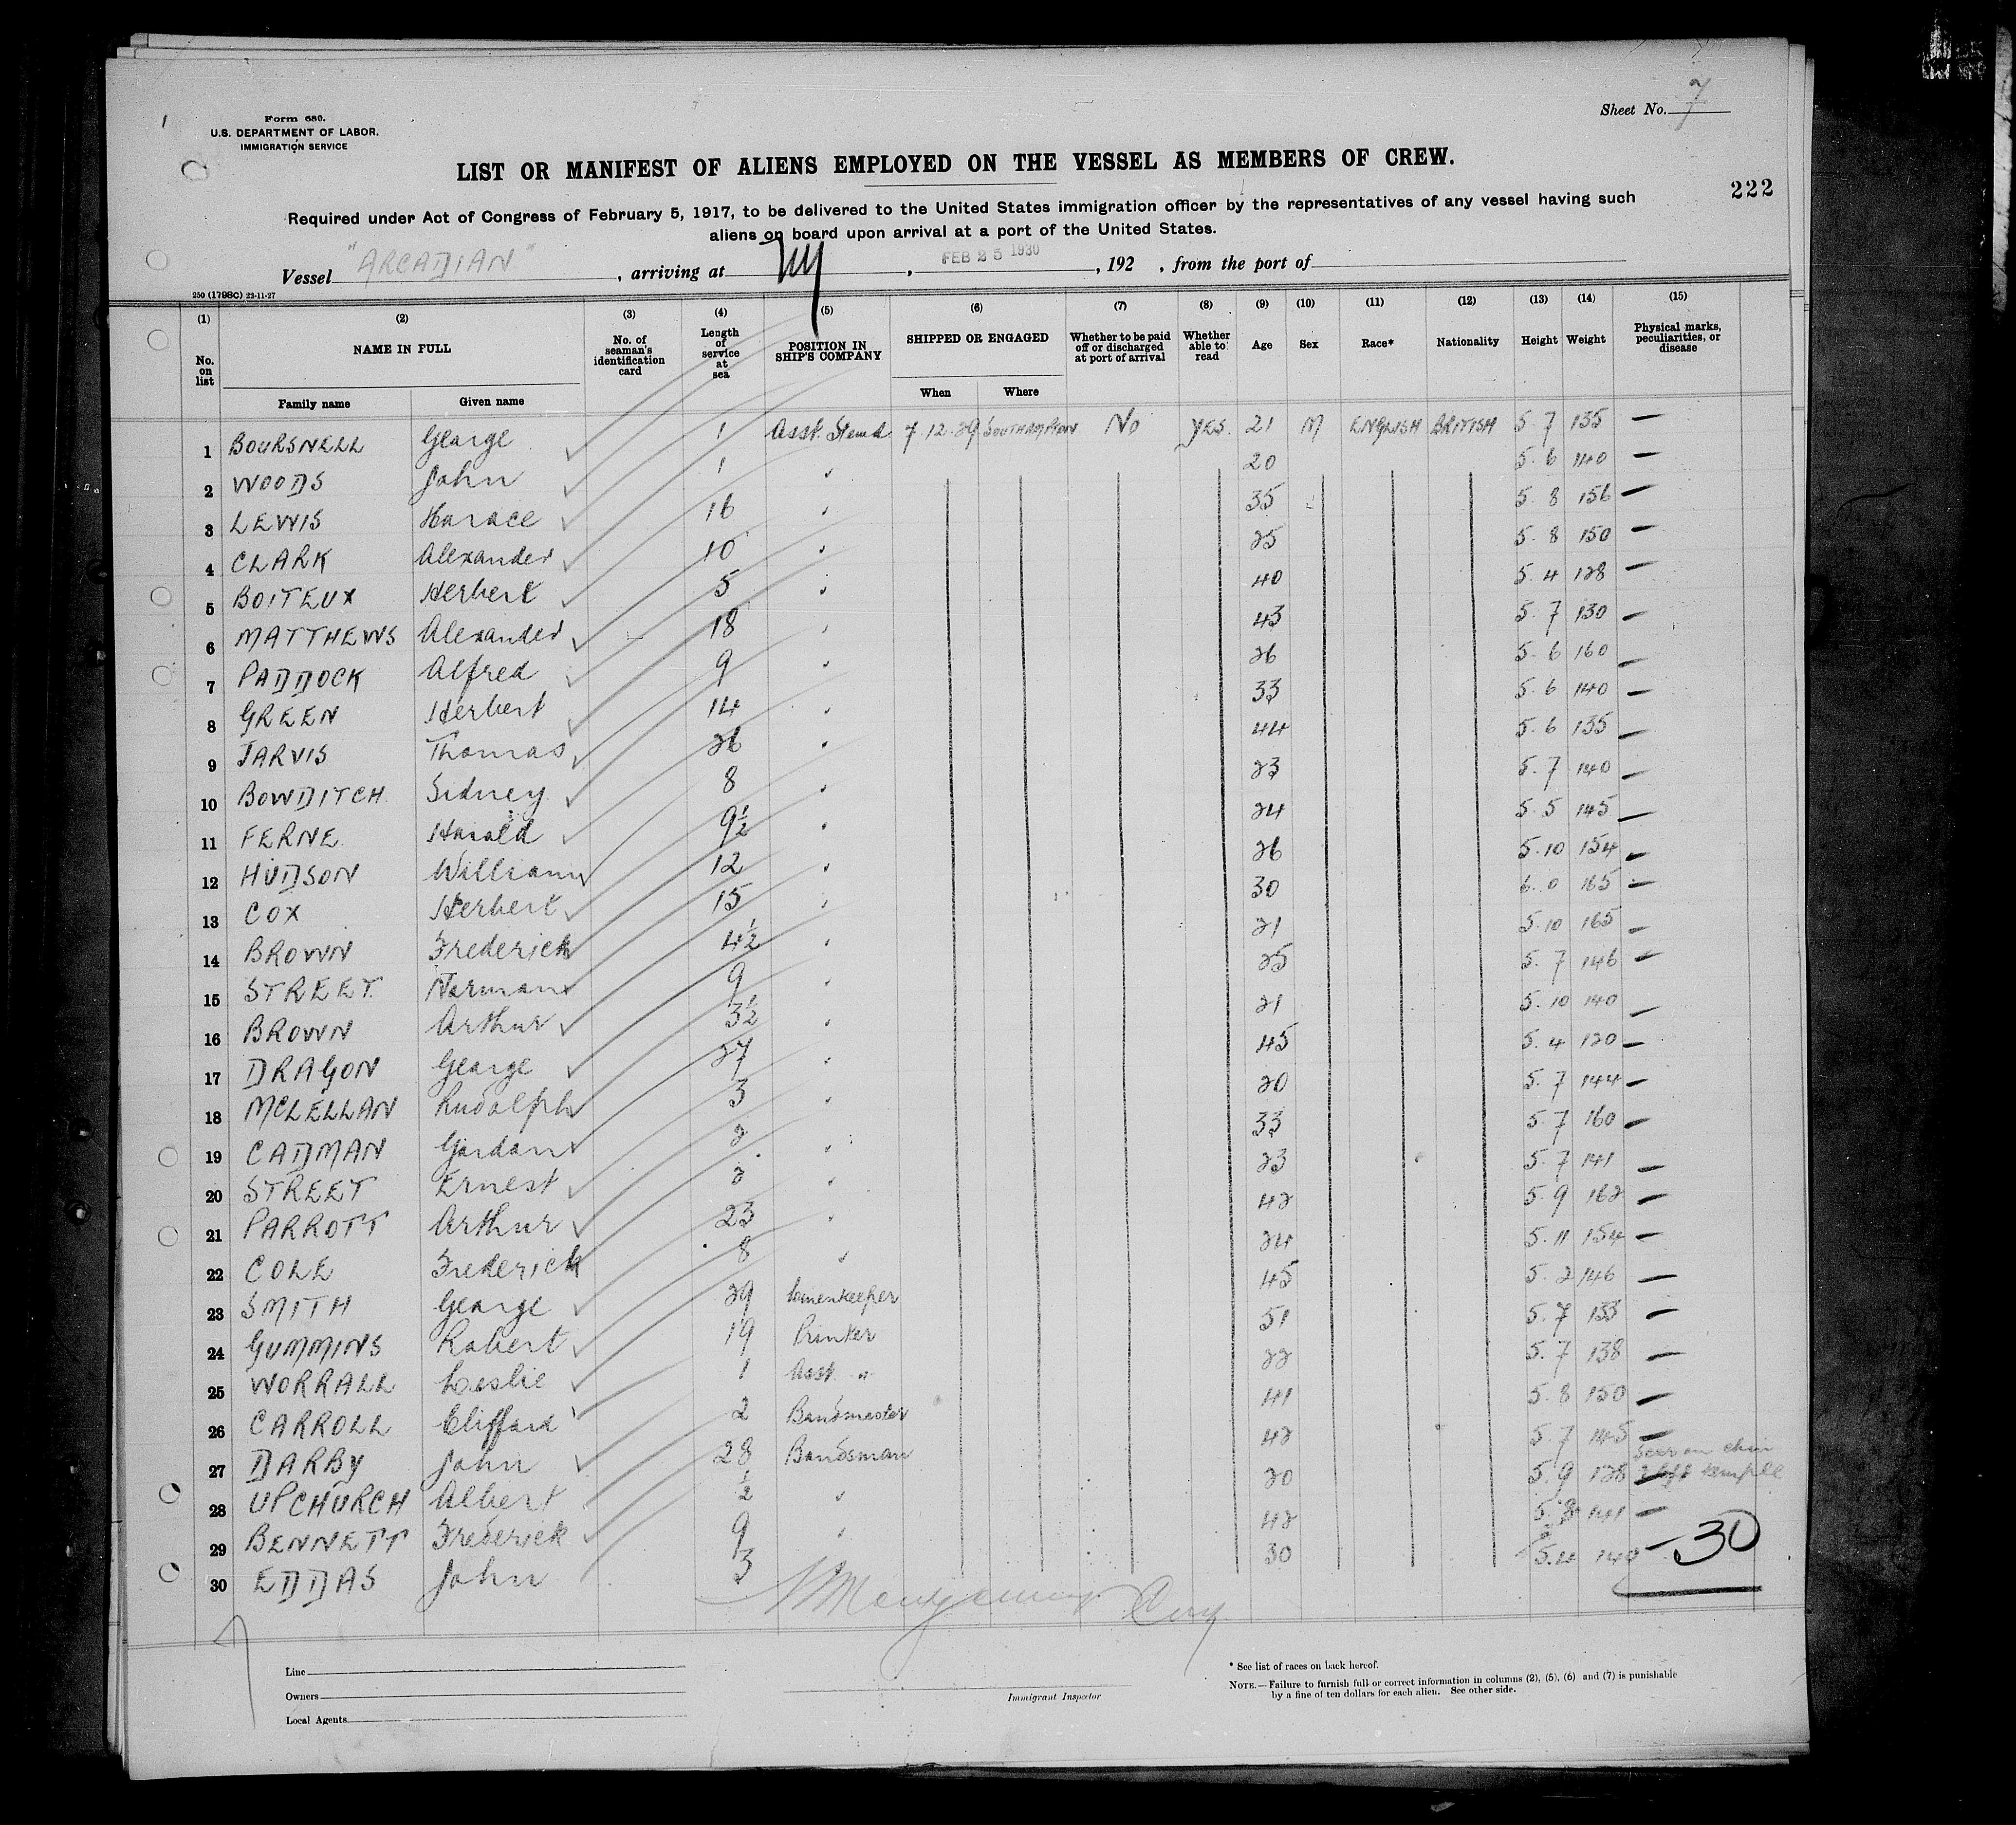 Form 680.
U.S. DEPARTMENT OF LABOR.
IMMIGRATION SERVICE
Sheet No. 7
LIST OR MANIFEST OF ALIENS EMPLOYED ON THE VESSEL AS MEMBERS OF CREW.
222
Required under Act of Congress of February 5, 1917, to be delivered to the United States immigration officer by the representatives of any vessel having such
aliens on board upon arrival at a port of the United States.
Vessel "ARCADIAN", arriving at NY, FEB 25 1930, 192 , from the port of
250 (1798C) 22-11-27
(1) (2) (3) (4) (5) (6) (7) (8) (9) (10) (11) (12) (13) (14) (15)
No. on list NAME IN FULL No. of seaman's identification card Length of service at sea POSITION IN SHIP'S COMPANY SHIPPED OR ENGAGED Whether to be paid off or discharged at port of arrival Whether able to read Age Sex Race* Nationality Height Weight Physical marks, peculiarities, or disease
Family name Given name When Where
1 BOURSNELL George 1 Asst. Stewd 7.12.29 SOUTHAMPTON No YES. 21 M ENGLISH BRITISH 5 7 135 —
2 WOODS John 1 " 20 5. 6 140 —
3 LEWIS Horace 16 " 35 5 8 156 —
4 CLARK Alexander 10 " 25 5. 8 150 —
5 BOITEUX Herbert 5 " 40 5. 4 128 —
6 MATTHEWS Alexander 18 " 43 5. 7 130 —
7 PADDOCK Alfred 9 " 26 5. 6 160 —
8 GREEN Herbert 14 " 33 5. 6 140 —
9 JARVIS Thomas 26 " 44 5. 6 135 —
10 BOWDITCH Sidney 8 " 23 5. 7 140 —
11 FERNE Harold 9½ " 24 5. 5 145 —
12 HUDSON William 12 " 26 5.10 154 —
13 COX Herbert 15 " 30 6. 0 165 —
14 BROWN Frederick 4½ " 21 5.10 165 —
15 STREET Norman 9 " 25 5. 7 146 —
16 BROWN Arthur 3½ " 21 5.10 140 —
17 DRAGON George 27 " 45 5. 4 120 —
18 MCLELLAN Rudolph 3 " 20 5. 7 144 —
19 CADMAN Gordon 2 " 33 5. 7 160 —
20 STREET Ernest 2 " 23 5. 7 141 —
21 PARROTT Arthur 23 " 42 5. 9 162 —
22 COLE Frederick 8 " 24 5. 11 154 —
23 SMITH George 29 Linenkeeper 45 5. 2 146 —
24 GUMMINS Robert 19 Printer 51 5. 7 133 —
25 WORRALL Leslie 1 Asst. " 22 5. 7 138 —
26 CARROLL Clifford 2 Bandmaster 41 5. 8 150 —
27 DARBY John 28 Bandsman 42 5. 7 145 —
28 UPCHURCH Albert ½ " 20 5. 9 128 Scar on chin & left temple
29 BENNETT Frederick 9 " 42 5. 141 —
30 EDDAS John 3 " 30 5.4 140 — 30
Montgomery
Line
Owners
Local Agents
Immigrant Inspector
* See list of races on back hereof.
NOTE.—Failure to furnish full or correct information in columns (2), (5), (6) and (7) is punishable
by a fine of ten dollars for each alien. See other side.